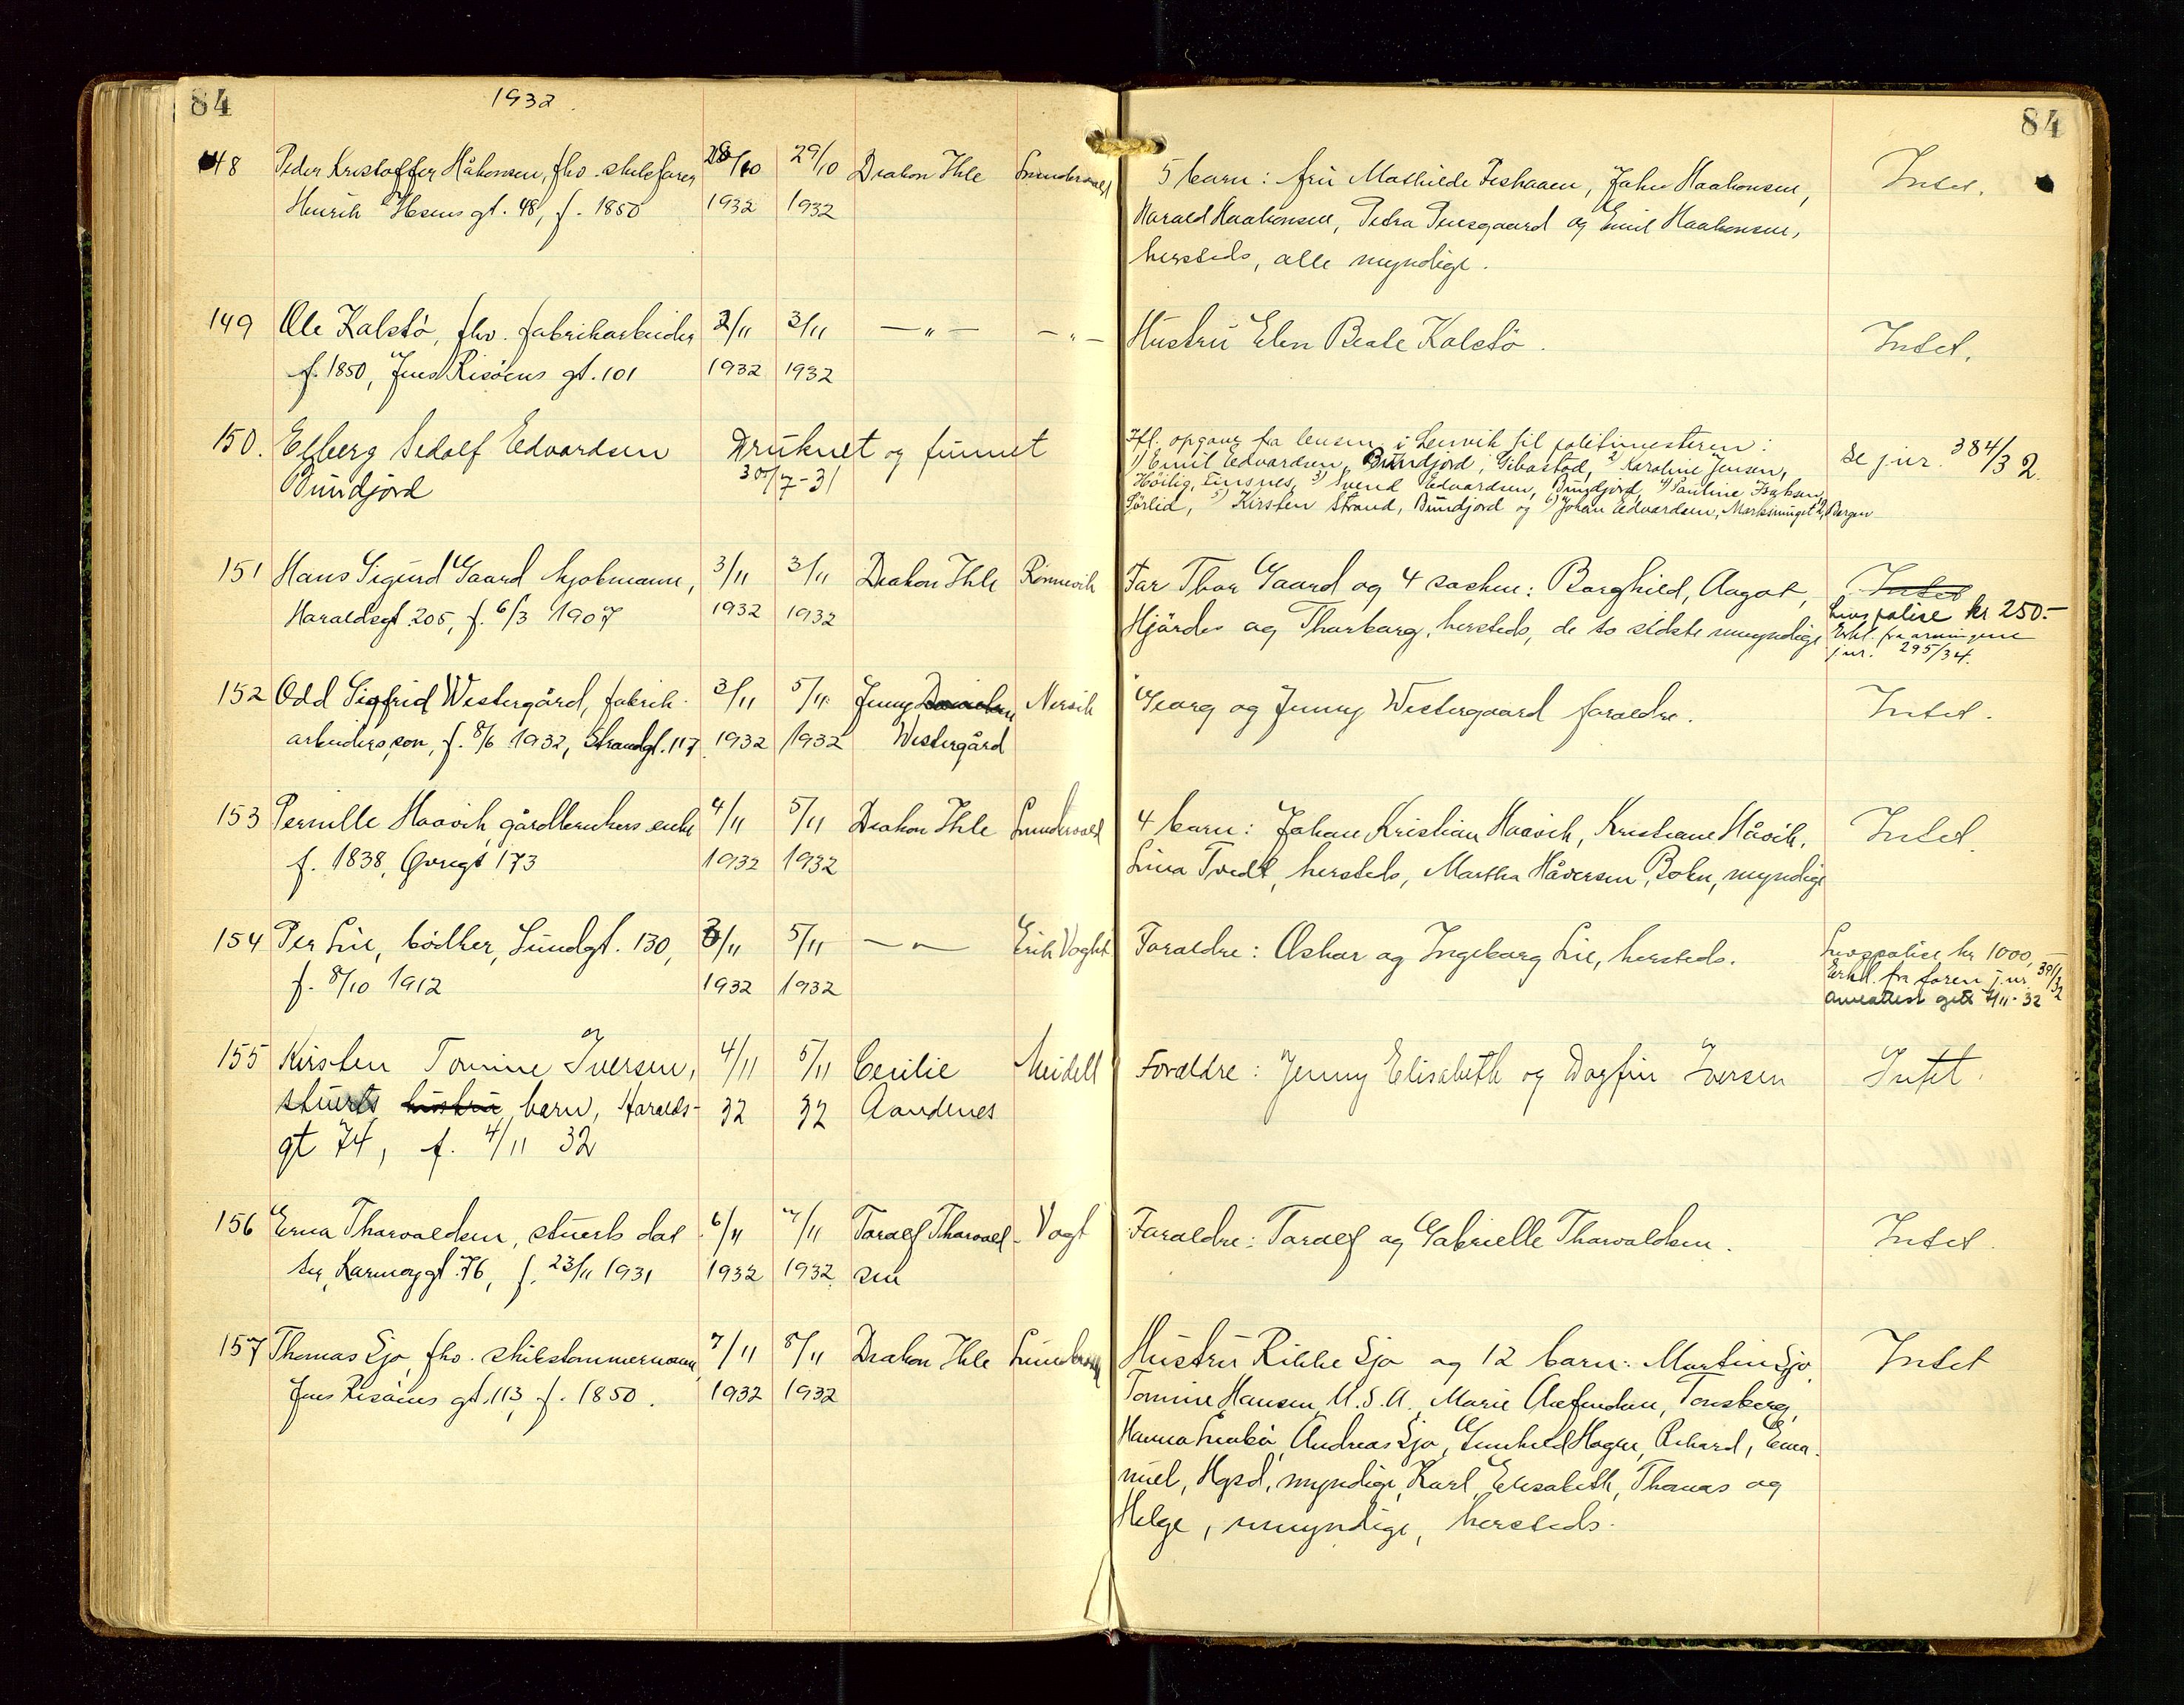 84
1932.
84
148 Peder Kristoffer Håkonsen, fhv. skibsfører 28/10 29/10 Diakon Ihle Lundervold 5 barn: fru Mathilde Feshaaen, John Haakonsen, Intet.
Henrik Ibsens gt. 48, f. 1850 1932 1932 Harald Haakonsen, Petra Pensgaard og Emil Haakonsen,
hersteds, alle myndige.
149 Ole Kalstö, fhv. fabrikarbeider 2/11 3/11 — " — — " — Hustru Elen Beate Kalstö. Intet.
f. 1850, Jens Risöens gt. 101 1932 1932
150. Elberg Sedolf Edvardsen Druknet og funnet Ifl. opgave fra lensm. i Lenvik til politimesteren: se jnr. 384/32.
Bundjord 30/7-31 1) Emil Edvardsen, Bundjord, Gibostad, 2) Karoline Jensen,
Höilig, Finsnes, 3) Svend Edvardsen, Bundjord, 4) Pauline Isaksen,
Sörlid, 5) Kirsten Strand, Bundjord og 6) Johan Edvardsen, Bergen
151 Hans Sigurd Gaard kjøbmann, 3/11 3/11 Diakon Ihle Rönnevik Far Thor Gaard og 4 søsken: Borghild, Aagot, Intet
Haraldsgt. 205, f. 6/3 1907 1932 1932 Hjördis og Thorborg, hersteds, de to sidste umyndige Livspolise kr 250.-
Erkl. fra arvingene
jnr. 295/34.
152 Odd Sigfrid Westergård, fabrik- 3/11 5/11 Jenny Nersik Georg og Jenny Westergaard foreldre. Intet.
arbeiders søn, f. 8/6 1932, Strandgt. 117 1932 1932 Westergård
153 Pernille Haavik, gårdbrukers enke 4/11 5/11 Diakon Ihle Lundervold 4 barn: Johan Kristian Haavik, Kristiane Håvik, Intet.
f. 1838, Øvregt 173 1932 1932 Lina Tvedt, hersteds, Martha Håversen, Bokn, myndige
154 Per Lie, bödker, Sundgt. 130, 3/11 5/11 — " — Erik Voght Foreldre: Oskar og Ingeborg Lie, hersteds. Livspolise kr 1000,—
f. 8/10 1912 1932 1932 Erkl. fra faren jnr. 391/32
Arveattest gitt 7/11-32
155 Kirsten Tomine Iversen, 4/11 5/11 Cecilie Meidell Foreldre: Jenny Elisabeth og Dagfin Iversen Intet.
stuerts hustru barn, Haralds- 32 32 Aandenes
gt 74, f. 4/11 32
156 Erna Thorvaldsen, stuerts dat- 6/11 7/11 Toralf Thorvald- Vogt Foreldre: Toralf og Gabrielle Thorvaldsen. Intet.
ter, Karmøygt. 76, f. 23/11 1931 1932 1932 sen
157 Thomas Sjo, fhv. skibstømmermann, 7/11 8/11 Diakon Ihle Lundervold Hustru Rikke Sjo og 12 barn: Martin Sjo, Intet
Jens Risöens gt. 113, f. 1850. 1932 1932 Tomine Hansen, U.S.A. Marie Tønsberg,
Hanna Andreas Sjo, Gunhild Hagen, Rikard, Ema-
nuel, Hgsd, myndige, Karl, Elisabeth, Thomas og
Helge, umyndige, hersteds.